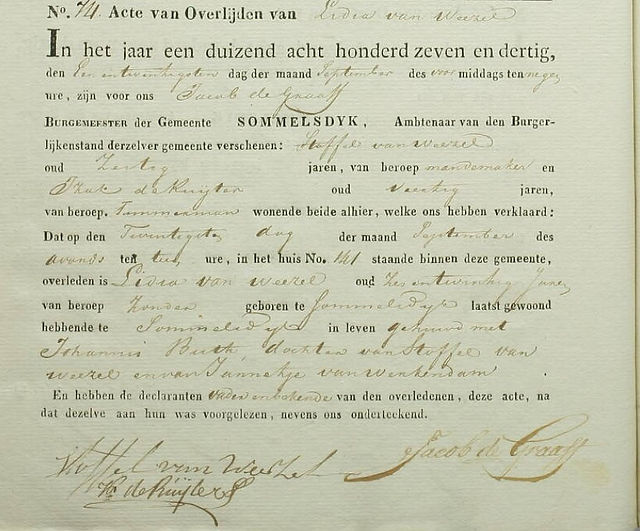 No. 74. Acte van Overlijden van Lidia van Weezel
In het jaar een duizend acht honderd zeven en dertig,
den Een entwintigsten dag der maand September des voor middags ten negen
ure, zijn voor ons Jacob de Graaff
BURGEMEESTER der Gemeente SOMMELSDYK, Ambtenaar van den Burger-
lijkenstand derzelver gemeente verschenen: Stoffel van Weezel
oud Zestig jaren, van beroep mandemaker en
Izak de Ruijter oud Veertig jaren,
van beroep. Timmerman wonende beide alhier, welke ons hebben verklaard:
Dat op den Twentigste dag der maand September des
avonds ten tien ure, in het huis No. 141 staande binnen deze gemeente,
overleden is Lidia van Weezel oud Zes entwintig Jaren
van beroep Zonder geboren te Sommelsdijk laatst gewoond
hebbende te Sommelsdijk in leven gehuwd met
Johannis Buth, dochter van Stoffel van
weezel en van Jannetje van Werkendam.
En hebben de declaranten vader en bekende van den overledenen, deze acte, na
dat dezelve aan hun was voorgelezen, nevens ons onderteekend.
Stoffel van Weezel Jacob de Graaff
de Ruijter